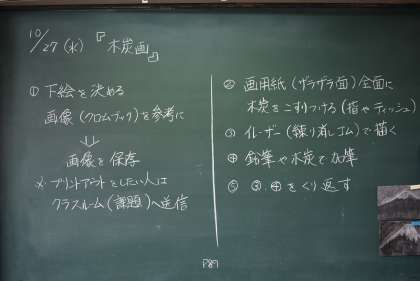 10/27(水)『木炭画』
① 下絵を決める
画像(クロムブック)を参考に
⇓
画像を保存
※ プリントアウトをしたい人は
クラスルーム(課題)へ送信
② 画用紙(ザラザラ面)全面に
木炭をこすりつける(指やティッシュ)
③ イレーザー(練り消しゴム)で描く
④ 鉛筆や木炭で加筆
⑤ ③.④をくり返す